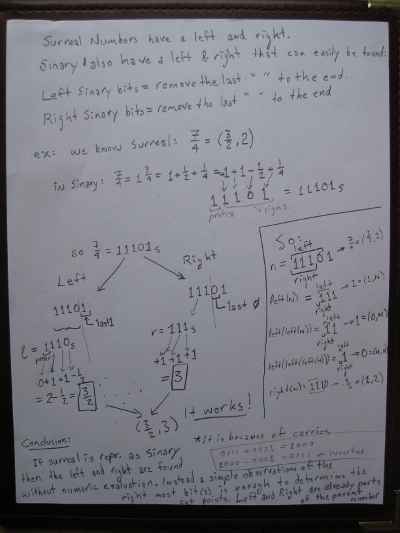 Surreal Numbers have a left and right.
Sinary also have a left & right that can easily be found:
Left Sinary bits = remove the last " " to the end.
Right Sinary bits = remove the last " " to the end
ex: we know surreal: 7/4 = (3/2, 2)
in Sinary: 7/4 = 1 3/4 = 1 + 1/2 + 1/4 = +1 + 1 - 1/2 + 1/4
11101 = 11101s
prefix signs
so 7/4 = 11101s
Left
Right
11101
last 1
11101
last 0
l = 1110s
r = 111s
0+1+1-1/2
= 2 - 1/2 = 3/2
+1+1+1
= 3
(3/2, 3)
It works!
So:
left
n = 11101 → 7/4 = (3/2, 2)
right
left
right
left(left(n)) = 11 → 1 = (0, ∞)
left(left(left(n)))
right(n) = 1110 → 3/2 = (1, 2)
Conclusion:
If surreal is repr. as Sinary
then the left and right are found
without numeric evaluation. Instead a simple observation of the
right most bit(s) is enough to determine the
cut points. Left and Right are already parts
of the parent
number
*It is because of carries
0111 + 0001 = 1000
1000 - 0001 = 0111 inverted